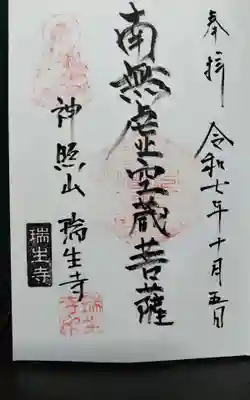 奉拝
令和七年十月五日
南無虚空蔵菩薩
神照山
瑞生寺
瑞生寺